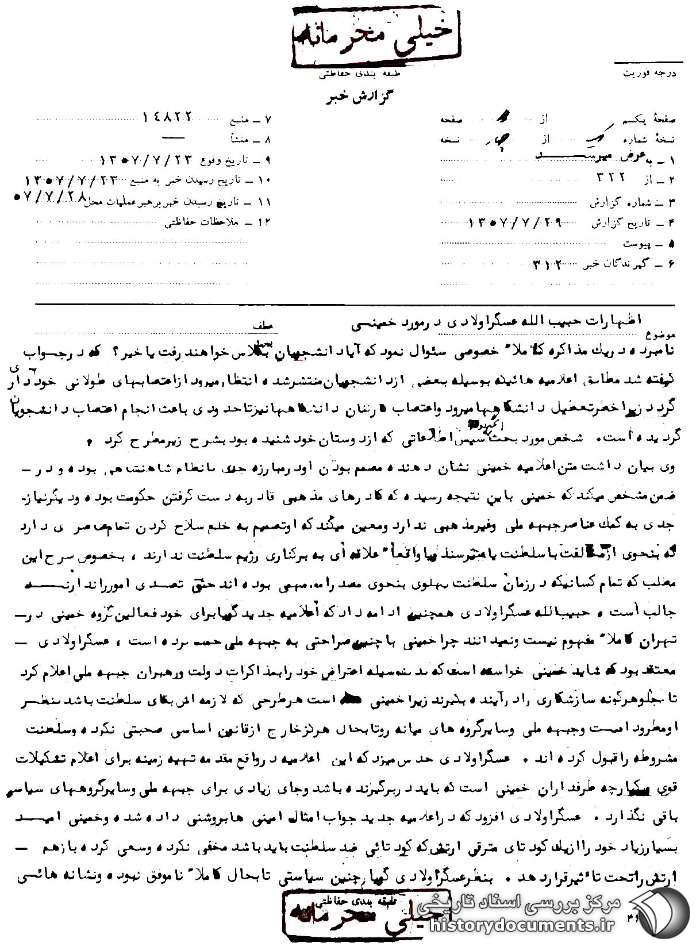 خیلی محرمانه
طبقه بندی حفاظتی
درجه فوریت
گزارش خبر
صفحه یکم از صفحه
نسخه شماره از نسخه
۱ – به عرض میرسد
۲ – از ۳۲۲
۳ – شماره گزارش
۴ – تاریخ گزارش ۱۳۵۷/۷/۲۹
۵ – پیوست
۶ – گیرندگان خبر ۳۱۲
۷ – منبع ۱۴۸۲۲
۸ – منشأ
۹ – تاریخ وقوع ۱۳۵۷/۷/۲۳
۱۰ – تاریخ رسیدن خبر به منبع ۱۳۵۷/۷/۲۳
۱۱ – تاریخ رسیدن خبر برهبر عملیات محل ۵۷/۷/۲۸
۱۲ – ملاحظات حفاظتی
موضوع اظهارات حبیب الله عسگراولادی درمورد خمینی
عطف
نامبرده دریک مذاکره کاملاً خصوصی سئوال نمود که آیا دانشجویان بکلاس خواهند رفت یا خیر؟ که درجواب
گفته شد مطابق اعلامیه هائیکه بوسیله بعضی ازدانشجویان منتشرشده انتظار میرود ازاعتصابهای طولانی خودداری
گردد زیرا خطرتعطیل دانشگاهها میرود واعتصاب کارکنان دانشگاهها نیزتاحدودی باعث انجام اعتصاب دانشجویان
گردیده است. شخص مورد بحث سپس اطلاعاتی که ازدوستان خود شنیده بود بشرح زیرمطرح کرد.
وی بیان داشت متن اعلامیه خمینی نشان دهنده مصمم بودن اودرمبارزه جدی بانظام شاهنشاهی بوده و در –
ضمن مشخص میکند که خمینی باین نتیجه رسیده که کادرهای مذهبی قادربه دست گرفتن حکومت بوده ودیگرنیاز
جدی به کمک عناصرجبهه ملی وغیرمذهبی ندارد ومعین میکند که اوتصمیم به خلع سلاح کردن تمام عناصری دارد
که بنحوی ازمخالفت باسلطنت یا میترسند ویا واقعاً علاقه ای به برکناری رژیم سلطنت ندارند، بخصوص شرح این
مطلب که تمام کسانیکه درزمان سلطنت پهلوی بنحوی مصدر امر مهمی بوده اند حق تصدی امور را ندارند
جالب است، حبیب الله عسگراولادی همچنین ادامه داد که اعلامیه جدید گویا برای خود فعالین گروه خمینی در –
تهران کاملاً مفهوم نیست ونمیدانند چرا خمینی باچنین صراحتی به جبهه ملی حمله برده است، عسگراولادی –
معتقد بود که شاید خمینی خواسته است که بدینوسیله اعتراض خود را بمذاکرات دولت ورهبران جبهه ملی اعلام کرد
تا جلوهرگونه سازشکاری را درآینده بگیرند زیرا خمینی است هرطرحی که لازمه اش بقای سلطنت باشد منظر
اومطرود است وجبهه ملی وسایرگروه های میانه روتابحال هرگزخارج ازقانین اساسی صحبتی نکرده وسلطنت
مشروطه راقبول کرده اند. عسگراولادی حدس میزد که این اعلامیه درواقع مقدمه تهیه زمینه برای اعلام تشکیلات
قوی ویکپارچه طرفداران خمینی است که باید دربرگیرنده باشد وجای زیادی برای جبهه ملی وسایرگروههای سیاسی
باقی نگذارد. عسگراولادی افزود که دراعلامیه جدید جواب امثال امینی ها بروشنی داده شده وخمینی امید
بسیارزیاد خود را ازیک کودتای مترقی ارتش که کودتائی ضد سلطنت باید باشد مخفی نکرده وسعی کرده بازهم –
ارتش راتحت تأثیر قرار دهد. بنظرعسگراولادی گویا چنین سیاستی تابحال کاملاً ناموفق نبوده ونشانه هائی
طبقه بندی حفاظتی
خیلی محرمانه
مرکز بررسی اسناد تاریخی
historydocuments.ir